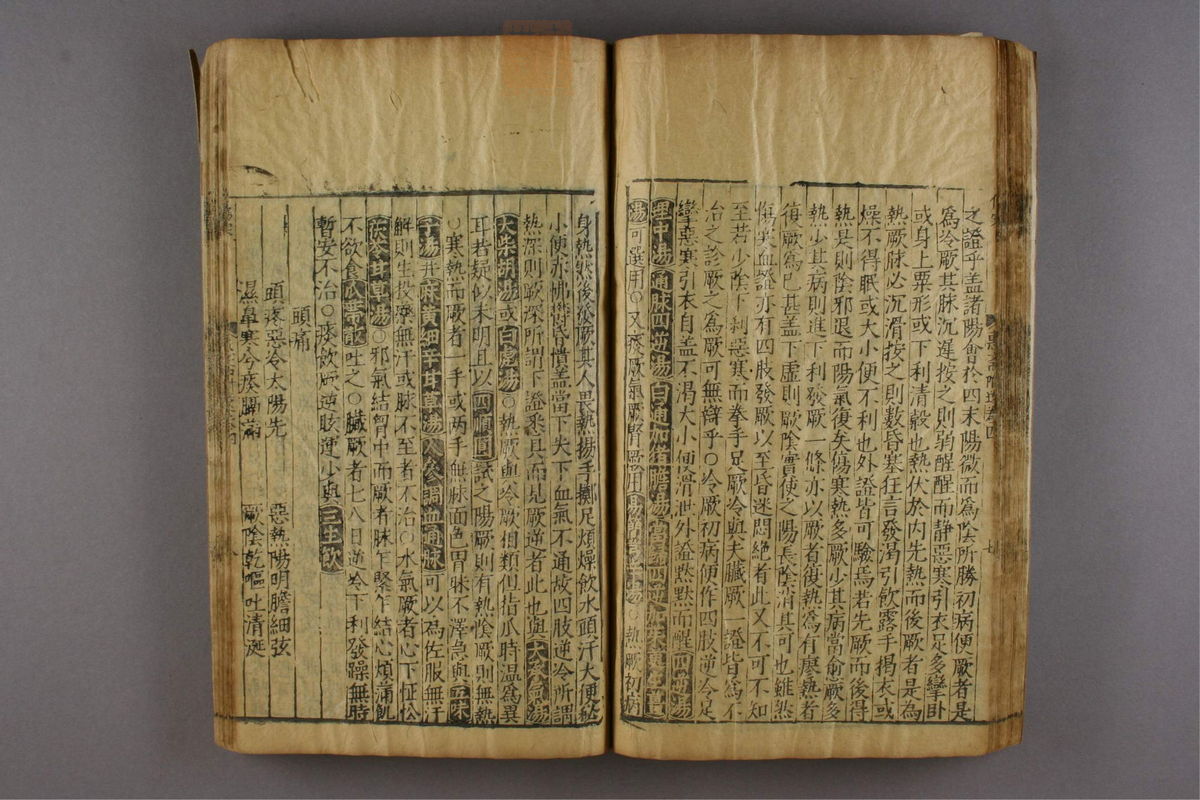 之證乎蓋諸陽會於四末陽微而為陰所勝初病便厥者是
為冷厥其脉沉遲按之則弱醒醒而靜惡寒引衣足多攣卧
或身上粟形或下利清穀也熱伏於內先熱而後厥者是為
熱厥脉必沉滑按之則數昏塞狂言發渴引飲露手掲衣或
燥不得眠或大小便不利也外證皆可驗焉若先厥而後得
熱是則陰邪退而陽氣復矣傷寒熱多厥少其病當愈厥多
熱少其病則進下利發厥一條亦以厥者復熱為有廖熱者
復厥為已甚蓋下虛則厥陰實使之陽長陰消其可也雖然
傷寒血證亦有四肢發厥以至昏迷悶絕者此又不可不知
至若少陰下利惡寒而拳手足厥冷與夫臟厥一證皆為不
治之診厥之為厥可無辯乎○冷厥初病便作四肢逆冷足
攣惡寒引衣自蓋不渴大小便滑泄外證默默而醒四逆湯
理中湯通脉四逆湯白通加猪膽湯當歸四逆加朱萸生薑
湯可選用○又痰厥氣厥腎厥用○熱厥初病
身熱然後發厥其人畏熱揚手擲足煩燥飲水頭汗大便秘
小便赤怫欝昏憒蓋當下失下血氣不通故四肢逆冷所謂
熱深則厥深所謂下證悉具而見厥逆者此也與大承氣湯
大柴胡湯或白虎湯○熱厥與冷厥相類但指爪時溫為異
耳若疑似未明且以四順圓試之陽厥則有熱陰厥則無熱
○寒熱而厥者一手或兩手無脉面色胃脉不澤急與五味
子湯并麻黄細辛甘草湯人參調血通脉可以為佐服無汗
解則生投藥無汗或脉不至者不治○水氣厥者心下怔忪
茯苓甘草湯○邪氣結胷中而厥者脉乍緊乍結心煩滿飢
不欲食瓜蒂散吐之○臟厥者七八日逆冷下利發躁無時
暫安不治○痰飲厥逆咳逆少與三生飲
頭痛
頭疼惡冷太陽先　惡熱陽明膽細弦
濕鼻寒今疼膈滿　厥陰乾嘔吐清涎